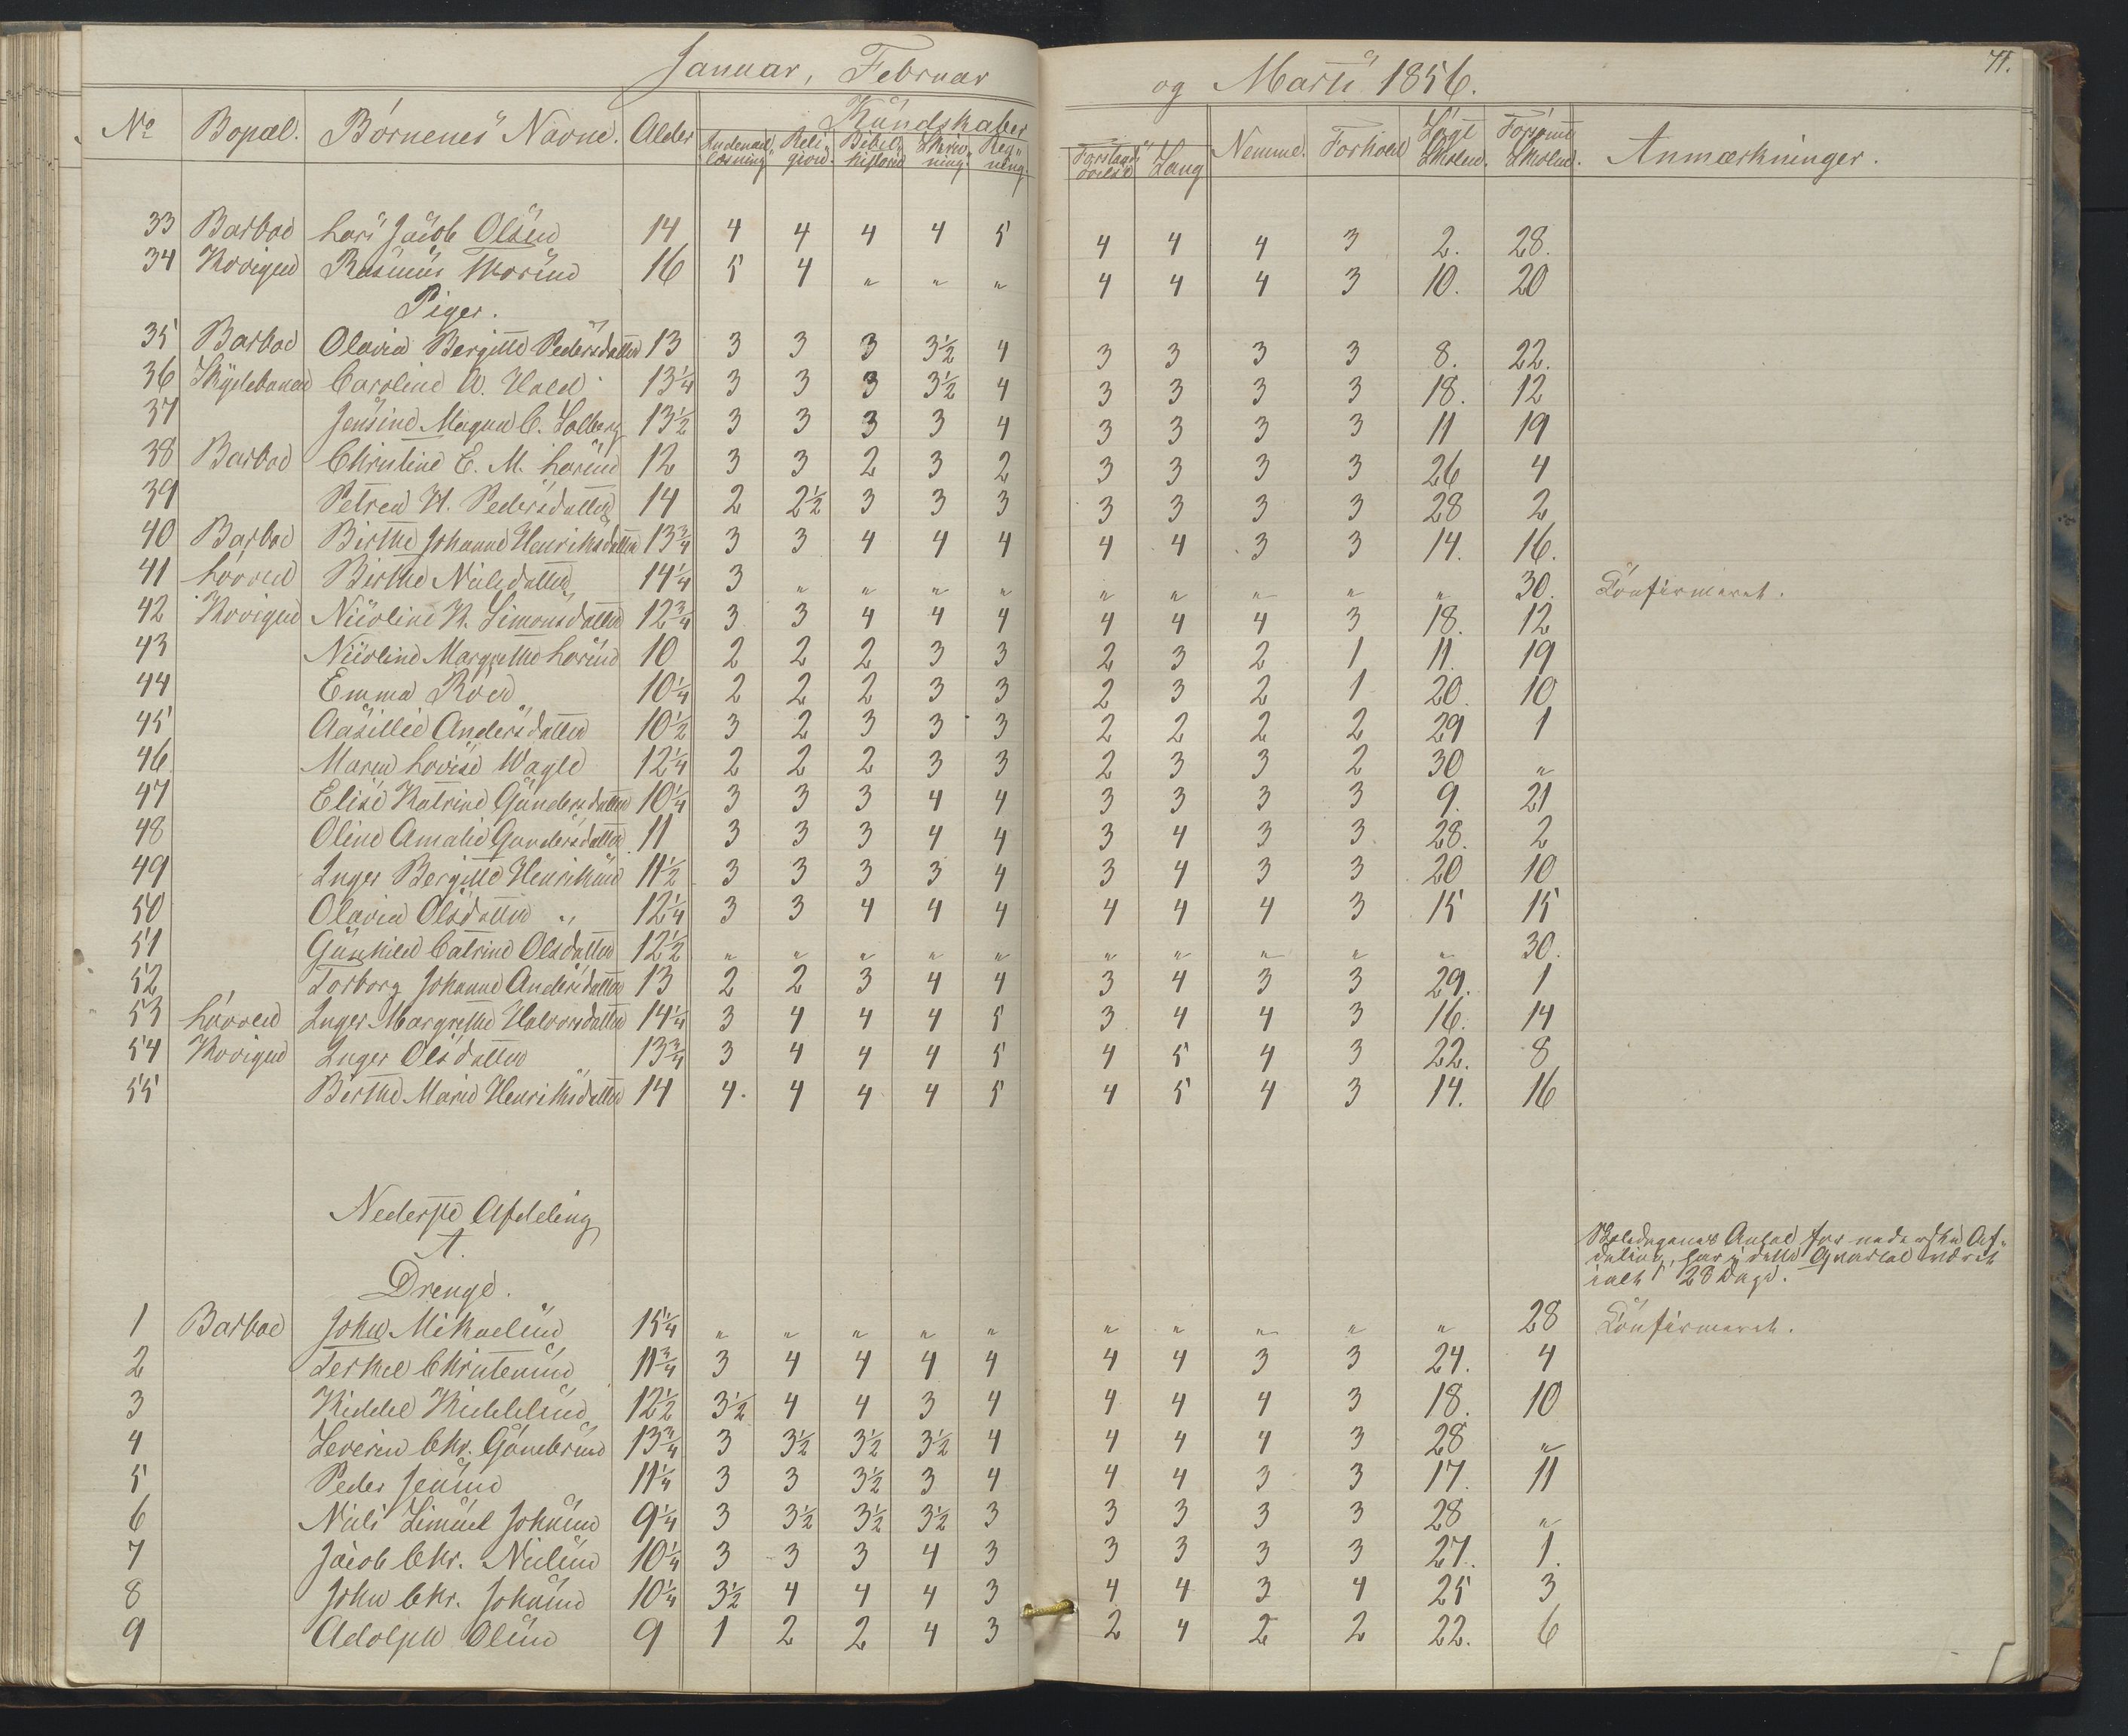 Januar, Februar og Marts 1856. 71.
No Bopæl. Børnenes Navne. Alder Kundskaber Nemme. Forhold Søgt Skolen. Forsømt Skolen. Anmærkninger.
Indenad læsning Reli- gion Bibel- historie Skriv- ning Reg- ning. Forstands øvelse Sang
33 Barboe Lars Jacob Olsen 14 4 4 4 4 5 4 4 4 3 2. 28.
34 Kroigen Rasmus Thorsen 16 5 4 " " " 4 4 4 3 10. 20
Piger.
35 Barboe Olavia Bergitte Pedersdatter 13 3 3 3 3½ 4 3 3 3 3 8. 22.
36 Skydebanen Caroline A. Hald 13¼ 3 3 3 3½ 4 3 3 3 3 18. 12
37 Jensine Magna C. Solberg 13½ 3 3 3 3 4 3 3 3 3 11 19
38 Barboe Christine E. M. Larsen 12 3 3 2 3 2 3 3 3 3 26 4
39 Petrea H. Pedersdatter 14 2 2½ 3 3 3 3 3 3 3 28 2
40 Barboe Birthe Johanne Henriksdatter 13¾ 3 3 4 4 4 4 4 3 3 14. 16.
41 Løvøen Birthe Nielsdatter 14¼ 3 " " " " " " " " " 30. Confirmeret.
42 Kroigen Nicoline K. Simonsdatter 12¾ 3 3 4 4 4 4 4 4 3 18. 12
43 Nicoline Margrethe Larsen 10 2 2 2 3 3 2 3 2 1 11. 19
44 Emma Roed 10¼ 2 2 2 3 3 2 3 2 1 20. 10
45 Aasillie Andersdatter 10½ 3 2 3 3 3 2 2 2 2 29 1
46 Maren Lovise Wagle 12¼ 2 2 2 3 3 2 3 3 2 30 "
47 Elise Katrine Gundersdatter 10¼ 3 3 3 4 4 3 3 3 3 9. 21
48 Oline Amalie Gundersdatter 11 3 3 3 4 4 3 4 3 3 28. 2
49 Inger Bergitte Henriksen 11½ 3 3 3 3 4 3 4 3 3 20 10
50 Olavia Olsdatter " 12¼ 3 3 4 4 4 4 4 4 3 15 15
51 Gunhild Catrine Olsdatter 12½ " " " " " " " " " " 30.
52 Torborg Johanne Andersdatter 13 2 2 3 4 4 3 4 3 3 29. 1
53 Løvøen Inger Margrethe Halvorsdatter 14¼ 3 4 4 4 5 3 4 4 3 16. 14
54 Kroigen Inger Olsdatter 13¾ 3 4 4 4 5 4 5 4 3 22. 8
55 Birthe Marie Henriksdatter 14 4. 4 4 4 5 4 5 4 3 14. 16
Nederste Afdeling
A.
Drenge.
Skoledagenes Antal for nederste Af-
deling har i dette Qvartal været
ialt 28 Dage.
1 Barboe John Mikaelsen 15¼ " " " " " " " " " " 28 Confirmeret.
2 Terkel Christensen 11¾ 3 4 4 4 4 4 4 3 3 24. 4
3 Kiddel Kiddelsen 12½ 3½ 4 4 3 4 4 4 4 3 18. 10
4 Severin Chr. Gundersen 13¾ 3 3½ 3½ 3½ 4 4 4 4 3 28 "
5 Peder Jensen 11¼ 3 3 3½ 3 4 4 4 3 3 17. 11
6 Niels Simoel Johnsen 9¼ 3 3½ 3½ 3½ 3 3 3 3 3 28 "
7 Jacob Chr. Nielsen 10¼ 3 3 3 4 3 3 3 3 3 27. 1.
8 John Chr. Johnsen 10¼ 3½ 4 4 4 3 4 4 3 4 25 3
9 Adolph Olsen 9 1 2 2 4 3 2 4 2 2 22. 6